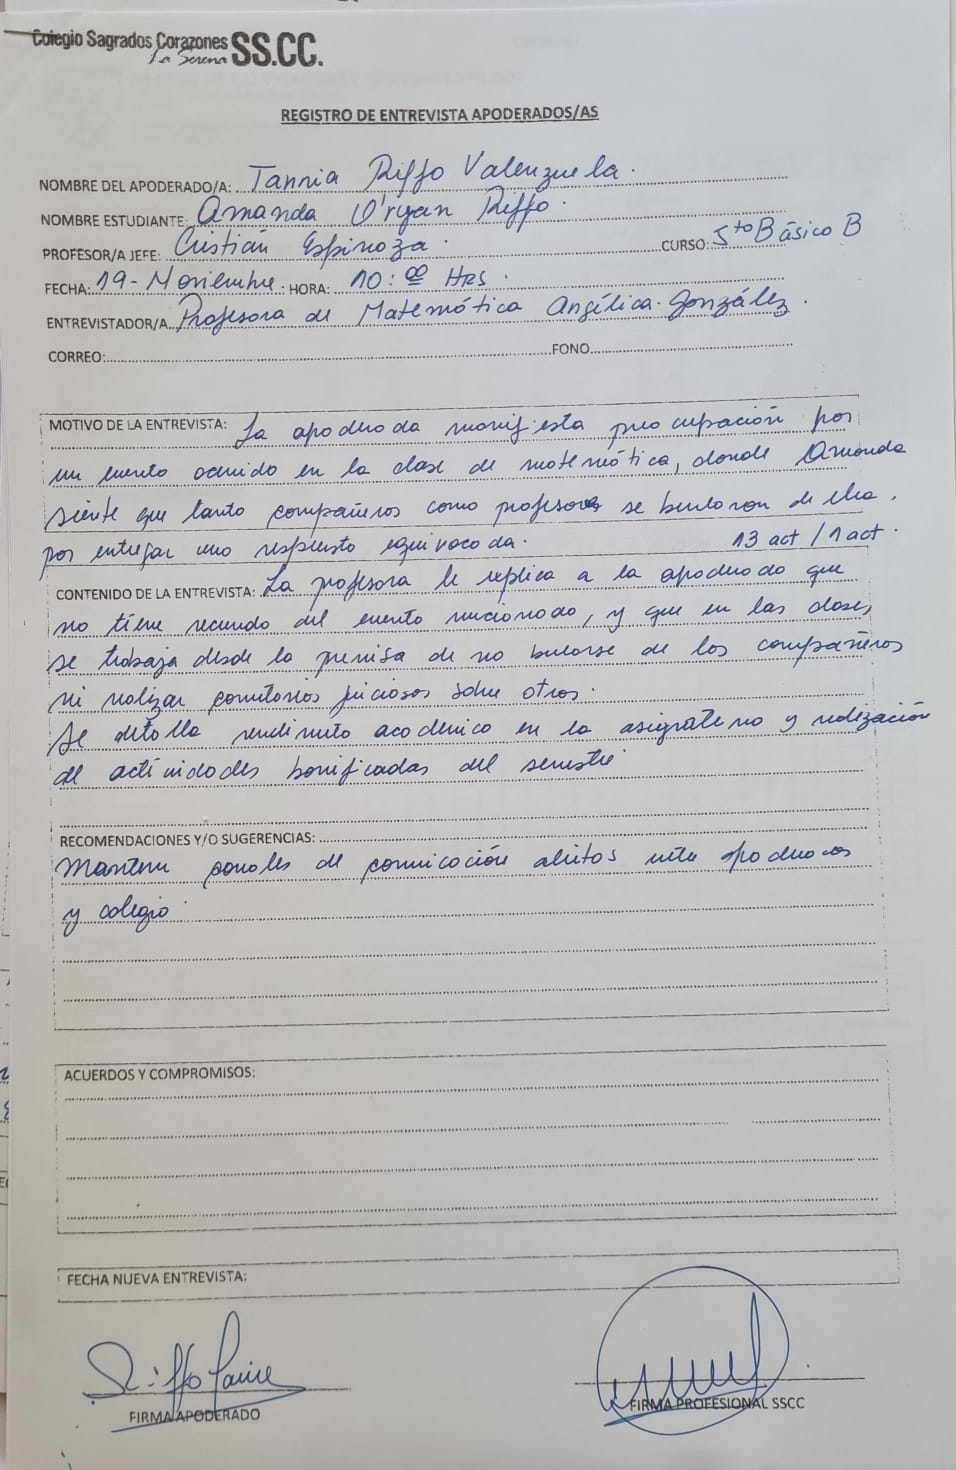 Colegio Sagrados Corazones SS.CC.
La Serena
REGISTRO DE ENTREVISTA APODERADOS/AS
NOMBRE DEL APODERADO/A: Tannia Riffo Valenzuela.
NOMBRE ESTUDIANTE: Amanda O'ryan Riffo.
PROFESOR/A JEFE: Cristián Espinoza. CURSO: 5to Básico B
FECHA: 19-Noviembre. HORA: 10:00 Hrs.
ENTREVISTADOR/A Profesora de Matemática Angélica González.
CORREO: FONO
MOTIVO DE LA ENTREVISTA: La apoderada manifiesta preocupación por
un evento ocurrido en la clase de matemática, donde Amanda
siente que tanto compañeros como profesora se burlaron de ella.
por entregar una respuesta equivocada. 13 act / 1 act.
CONTENIDO DE LA ENTREVISTA: La profesora le replica a la apoderada que
no tiene recuerdo del evento mencionado, y que en las clases,
se trabaja desde la premisa de no burlarse de los compañeros
ni realizar comentarios juiciosos sobre otros.
Se detalla rendimiento academico en la asignatura y realización
de actividades bonificadas del semestre
RECOMENDACIONES Y/O SUGERENCIAS:
Mantener canales de comunicación abiertos entre apoderados
y colegio.
ACUERDOS Y COMPROMISOS:
FECHA NUEVA ENTREVISTA:
FIRMA APODERADO
FIRMA PROFESIONAL SSCC